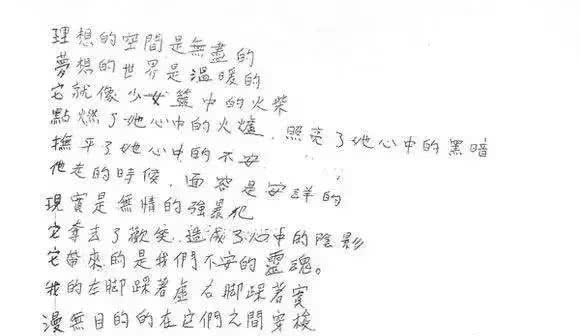 理想的空間是無盡的
夢想的世界是溫暖的
它就像少女籃中的火柴
點燃了她心中的火爐，照亮了她心中的黑暗
撫平了她心中的不安
他走的時候，面容是安詳的
現實是無情的強暴犯
它拿去了歡笑，造成了心中的陰影
它帶來的是我們不安的靈魂。
我的左腳踩著虛 右腳踩著實
漫無目的的在它們之間穿梭